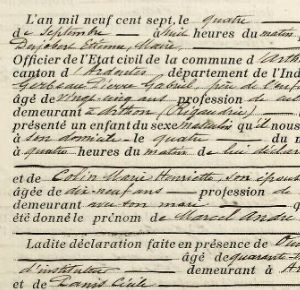 L'an mil neuf cent sept, le quatre
de Septembre à huit heures du matin
Desjobert Etienne, Marie,
Officier de l'Etat civil de la commune d'Arth
canton d'Ardentes département de l'Ind
Pierre Gabriel, père de l'enf
âgé de vingt cinq ans profession de
demeurant à Arthon
présenté un enfant du sexe masculin qu'il nous
à son domicile le quatre du m
à quatre heures du matin de lui déclar
et de Colin Marie Henriette, son épous
âgée de dix-neuf ans profession de
demeurant avec son mari q
été donné le prénom de Marcel André
Ladite déclaration faite en présence de
âgé de quarante
d'instituteur demeurant à A
et de Danis